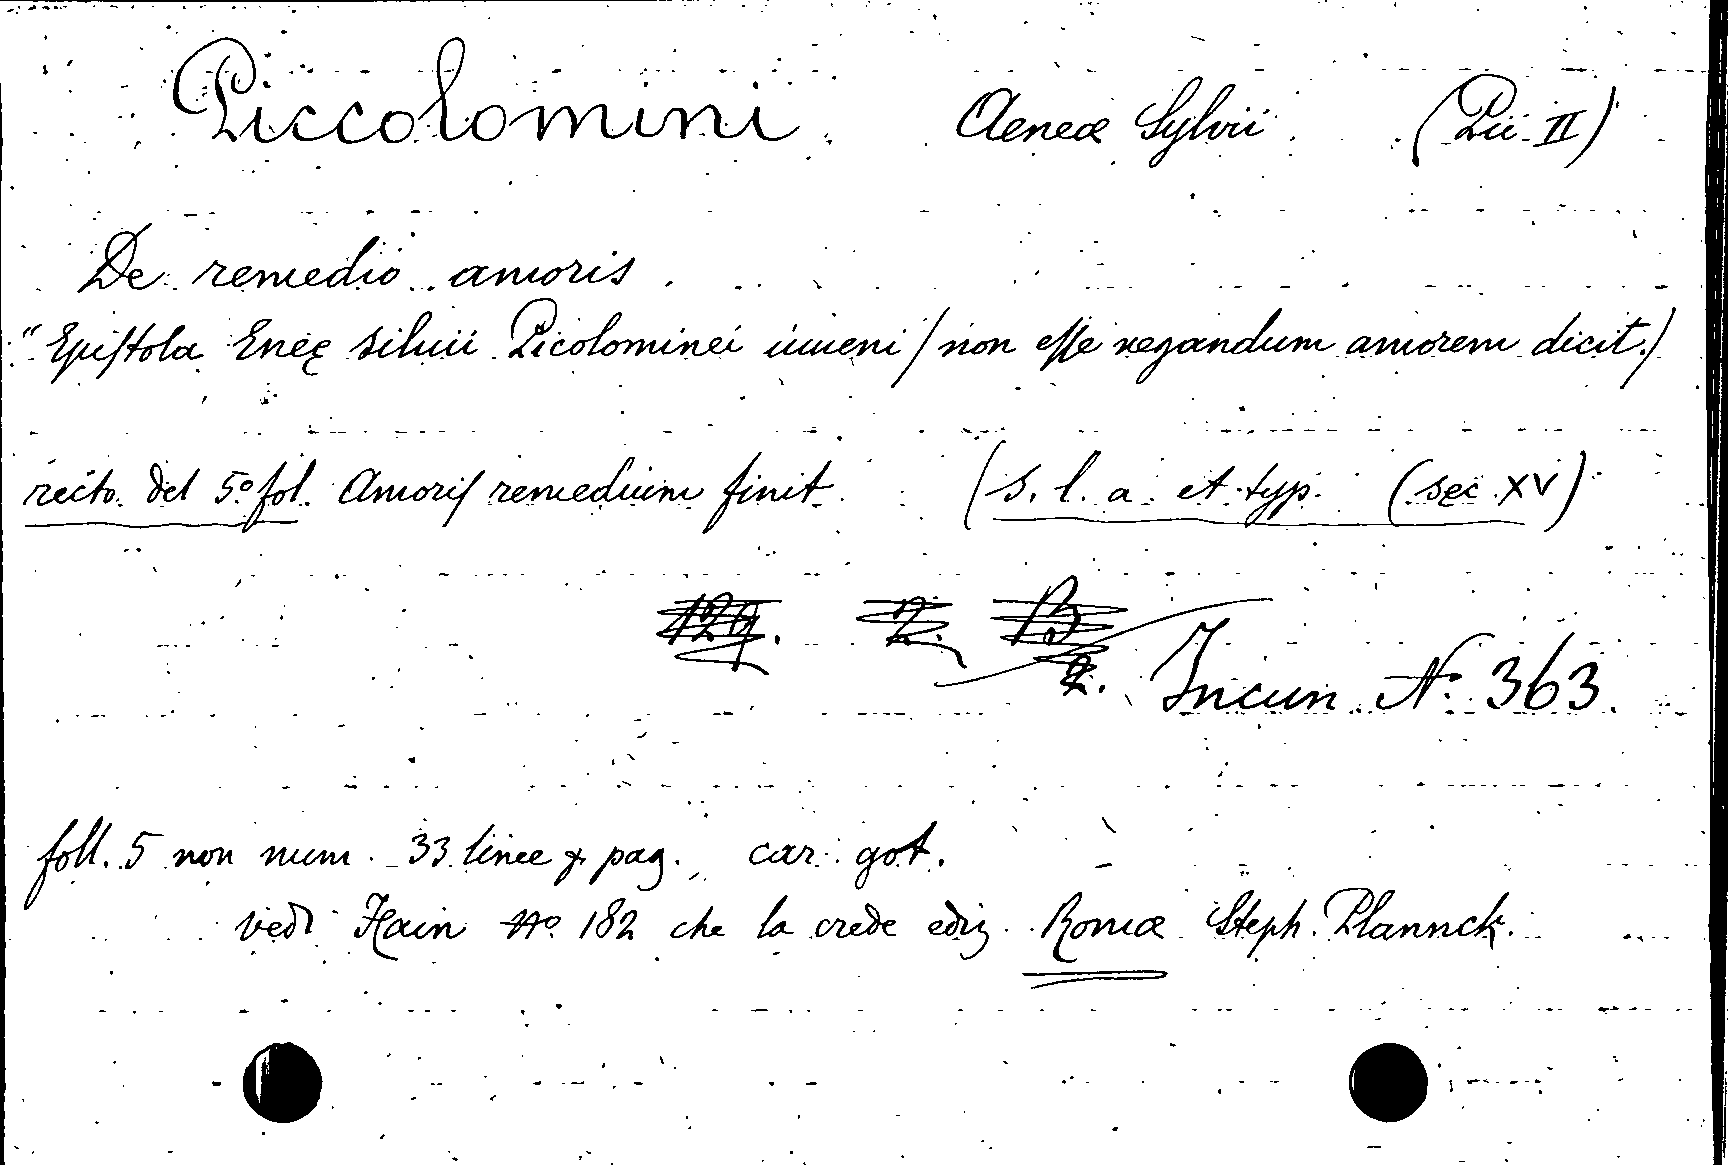 Piccolomini Aeneæ Sylvii (Pii II)
De remedio amoris
"Epiſtola Eneę silvii Picolominei iuueni / non eſſe negandum amorem dicit /
recto del 5º fol. Amoriſ remedium finit (s. l. a. et typ. (sec XV)
129. Z. B
2. Incun Nº 363.
foll. 5 non num. 33 linee p pag. car. got.
vedi Hain Nº 182 che la crede ediz Romæ Steph. Plannck.